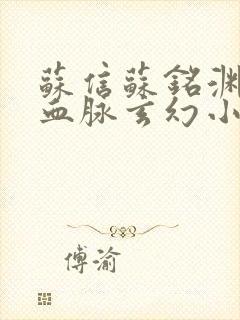 蘇信蘇銘淵
血脈玄幻小
傅渝